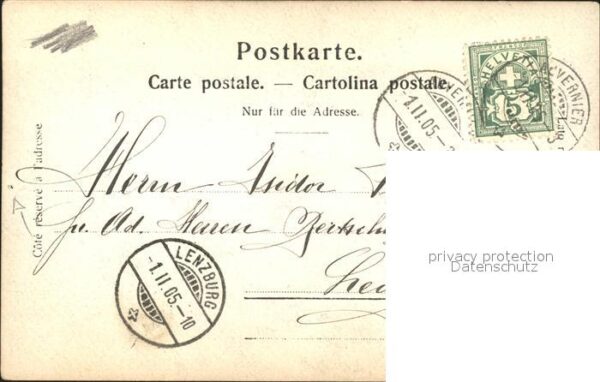 Postkarte.
Carte postale. — Cartolina postale.
Nur für die Adresse.
Côté réservé à l'adresse
HELVETIA
5
AUVERNIER
-1.II.05.-
Herrn Isidor
p. Ad. Herren
LENZBURG
-1.II.05.-10
privacy protection
Datenschutz